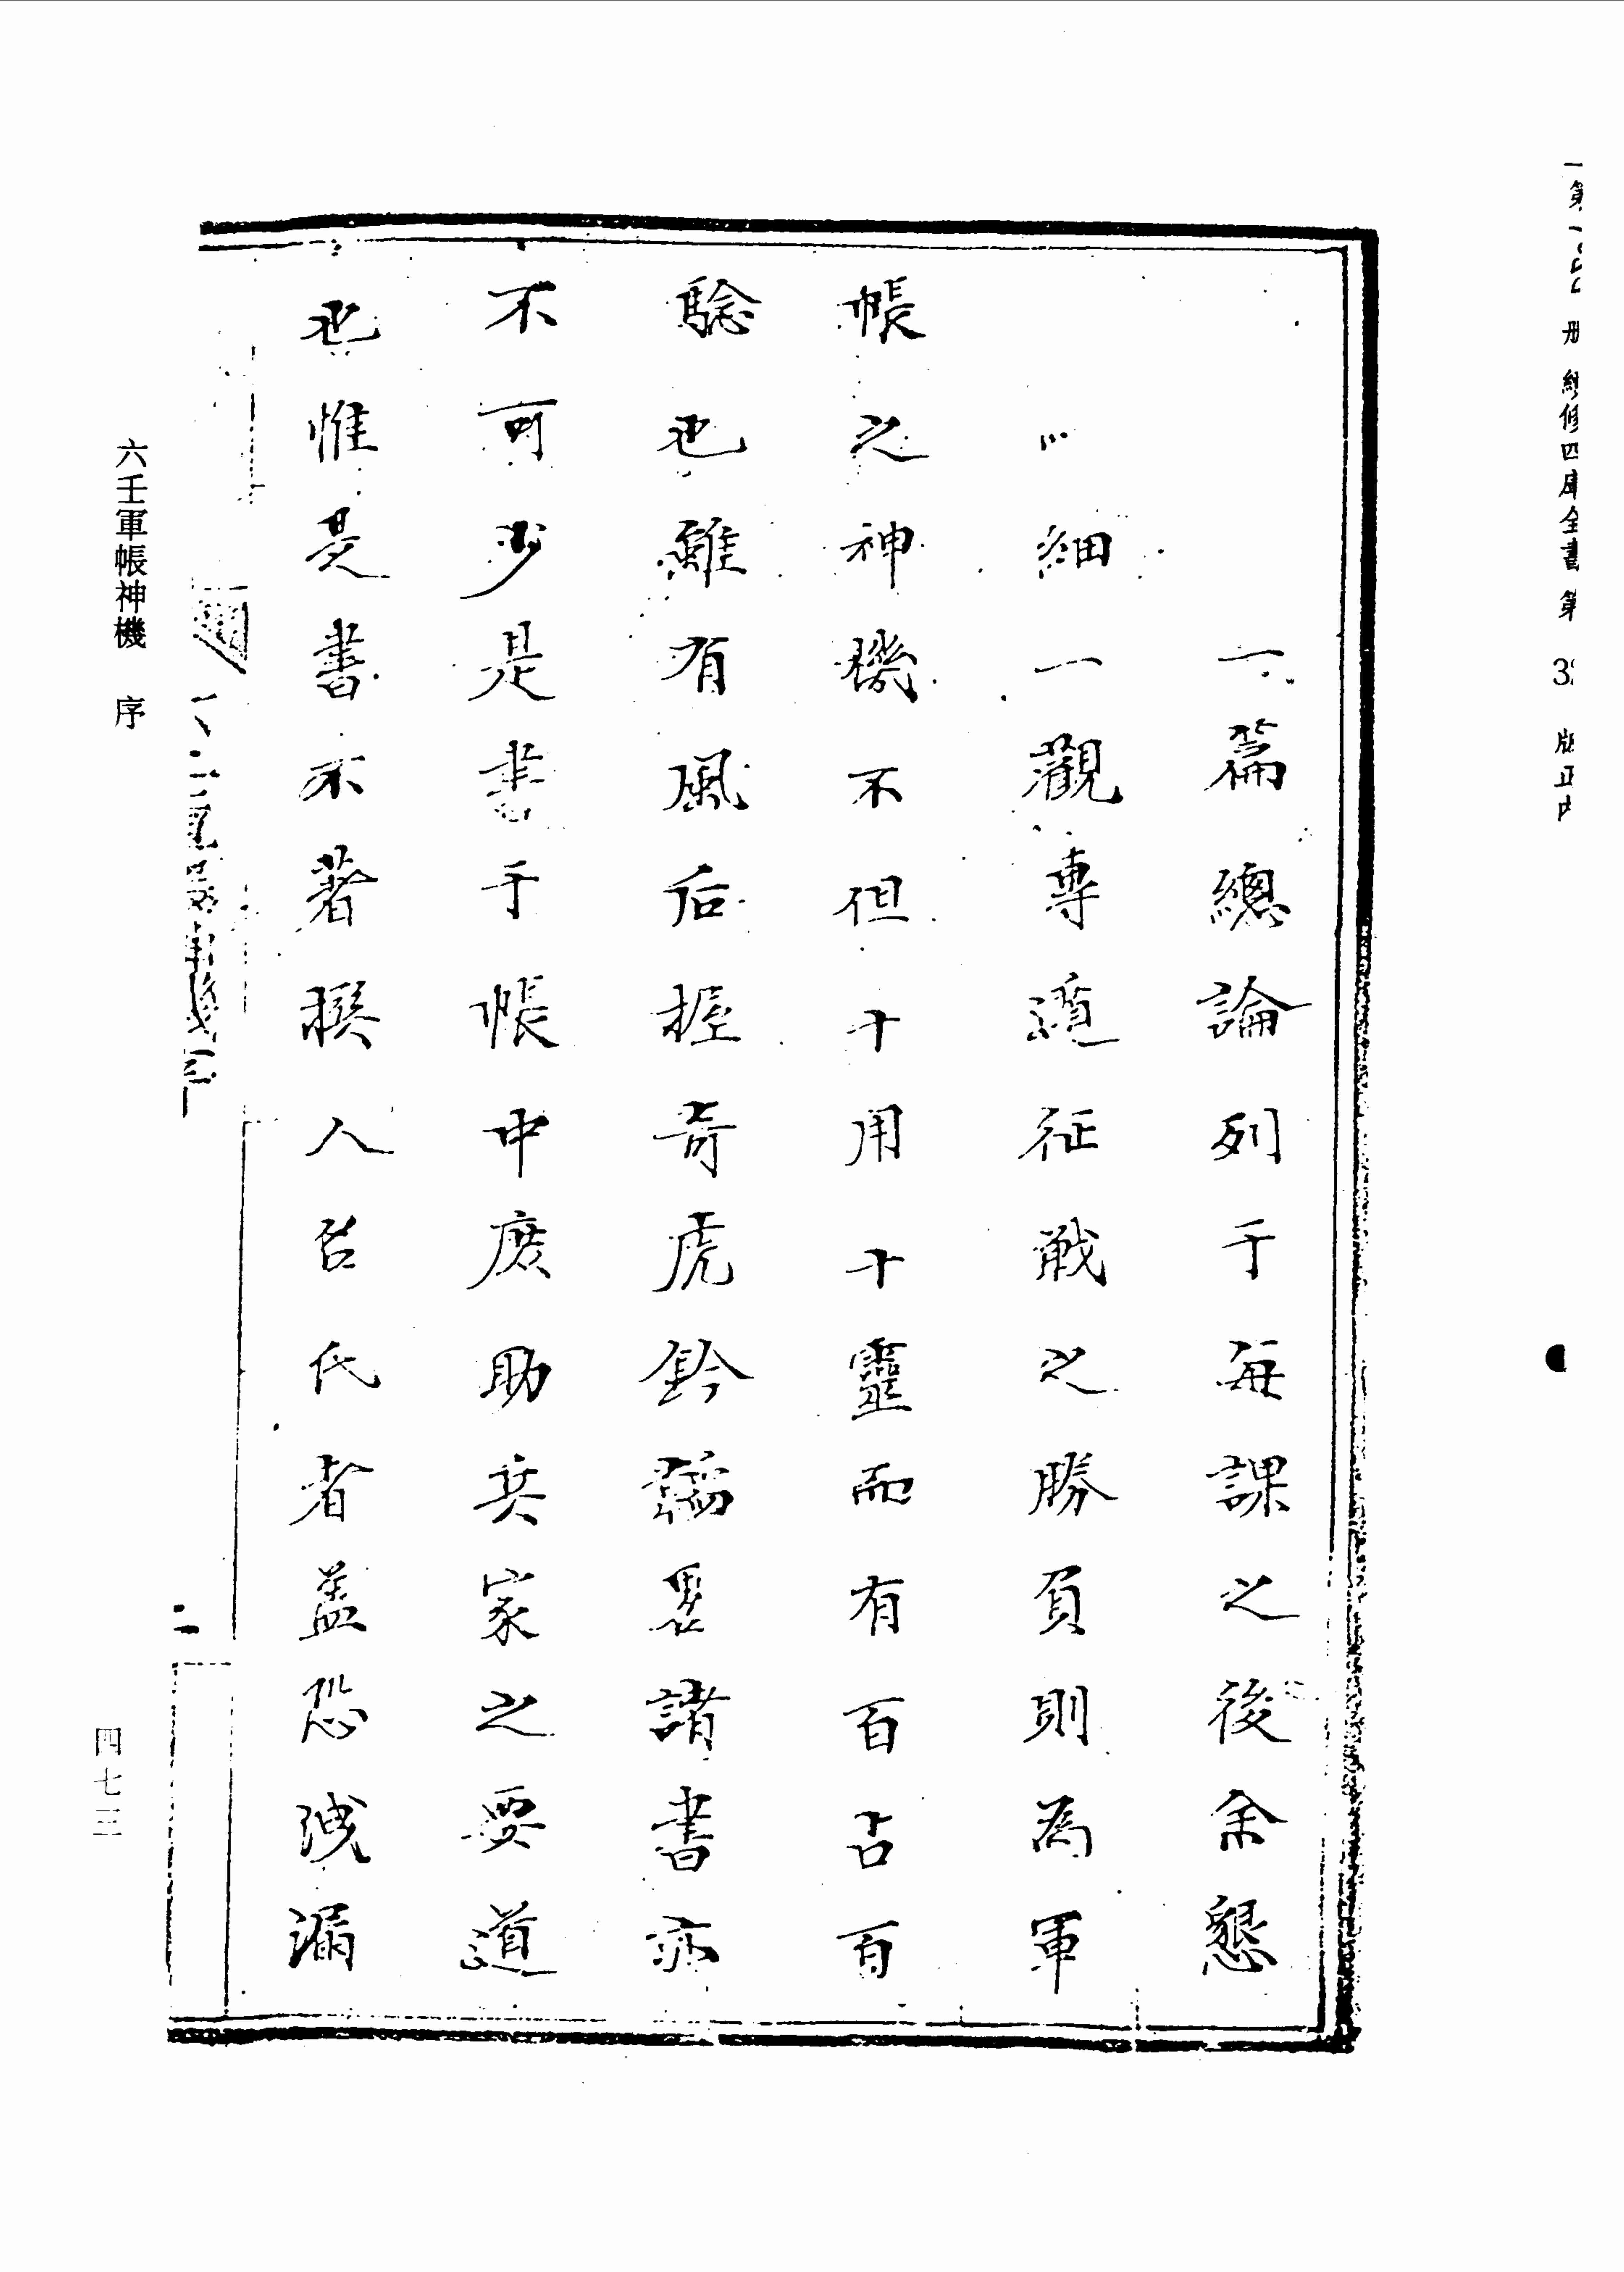 一篇總論列于每課之後余懇
細一觀專道征戰之勝負則為軍
帳之神機不但十用十靈而有百占百
騐也雖有風后握奇虎鈐韜畧諸書亦
不可少是書于帳中庶助兵家之要道
也惟是書不著撰人名氏者盖恐洩漏
六壬軍帳神機 序
四七三
二
修四庫全書